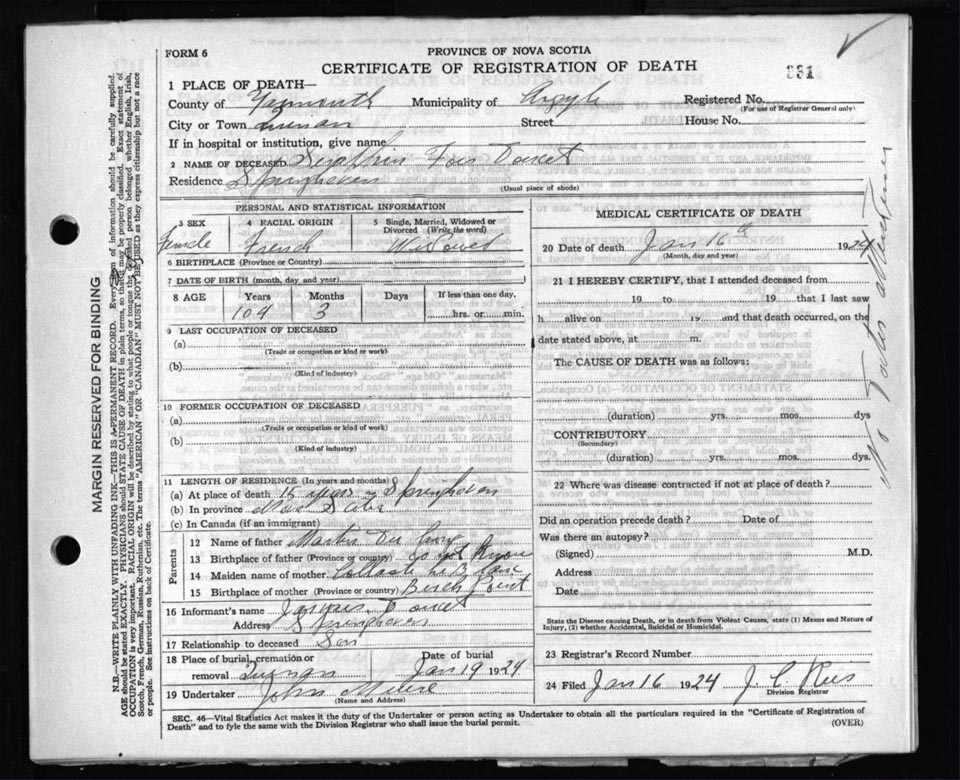 FORM 6
PROVINCE OF NOVA SCOTIA
CERTIFICATE OF REGISTRATION OF DEATH
1 PLACE OF DEATH—
County of Yarmouth Municipality of Argyle Registered No.
(For use of Registrar General only)
City or Town Quinan Street House No.
If in hospital or institution, give name
2 NAME OF DECEASED Doucet
Residence Springhaven
(Usual place of abode)
PERSONAL AND STATISTICAL INFORMATION
3 SEX 4 RACIAL ORIGIN 5 Single, Married, Widowed or Divorced (Write the word)
Female French Widowed
6 BIRTHPLACE (Province or Country)
7 DATE OF BIRTH (month, day, and year)
8 AGE Years Months Days If less than one day,
104 3 hrs. or min.
9 LAST OCCUPATION OF DECEASED
(a)
(Trade or occupation or kind or work)
(b)
(Kind of industry)
10 FORMER OCCUPATION OF DECEASED
(a)
(Trade or occupation or kind of work)
(b)
(Kind of industry)
11 LENGTH OF RESIDENCE (In years and months)
(a) At place of death 15 years Springhaven
(b) In province Nova Scotia
(c) In Canada (if an immigrant)
Parents
12 Name of father
13 Birthplace of father (Province or country) do not know
14 Maiden name of mother
15 Birthplace of mother (Province or country) Point
16 Informant's name Doucet
Address Springhaven
17 Relationship to deceased Son
18 Place of burial, cremation or removal Quinan Date of burial Jan 19 1924
19 Undertaker John
(Name and Address)
MEDICAL CERTIFICATE OF DEATH
20 Date of death Jan 16th 1924
(Month, day and year)
21 I HEREBY CERTIFY, that I attended deceased from
19 to 19 that I last saw
h alive on 19 and that death occurred, on the
date stated above, at m.
The CAUSE OF DEATH was as follows:
(duration) yrs. mos. dys
CONTRIBUTORY
(Secondary)
(duration) yrs. mos. dys.
22 Where was disease contracted if not at place of death?
Did an operation precede death? Date of
Was there an autopsy?
(Signed) M.D.
Address
Date
State the Disease causing Death, or in death from Violent Causes, state (1) Means and Nature of
Injury, (2) whether Accidental, Suicidal or Homicidal.
23 Registrar's Record Number
24 Filed Jan 16 1924
Division Registrar
SEC. 46—Vital Statistics Act makes it the duty of the Undertaker or person acting as Undertaker to obtain all the particulars required in the "Certificate of Registration of
Death" and to fyle the same with the Division Registrar who shall issue the burial permit.
(OVER)
MARGIN RESERVED FOR BINDING
N.B.—WRITE PLAINLY WITH UNFADING INK—THIS IS A PERMANENT RECORD. Every item of information should be carefully supplied.
AGE should be stated EXACTLY. PHYSICIANS should STATE CAUSE OF DEATH in plain terms, so that it may be properly classified. Exact statement of
OCCUPATION is very important. RACIAL ORIGIN will be described by stating to what people or tongue the deceased person belonged whether English, Irish,
Scotch, French, German, Russian, Ruthenian, etc. The terms "AMERICAN" OR "CANADIAN" MUST NOT BE USED as they express citizenship but not a race
or people. See instructions on back of Certificate.